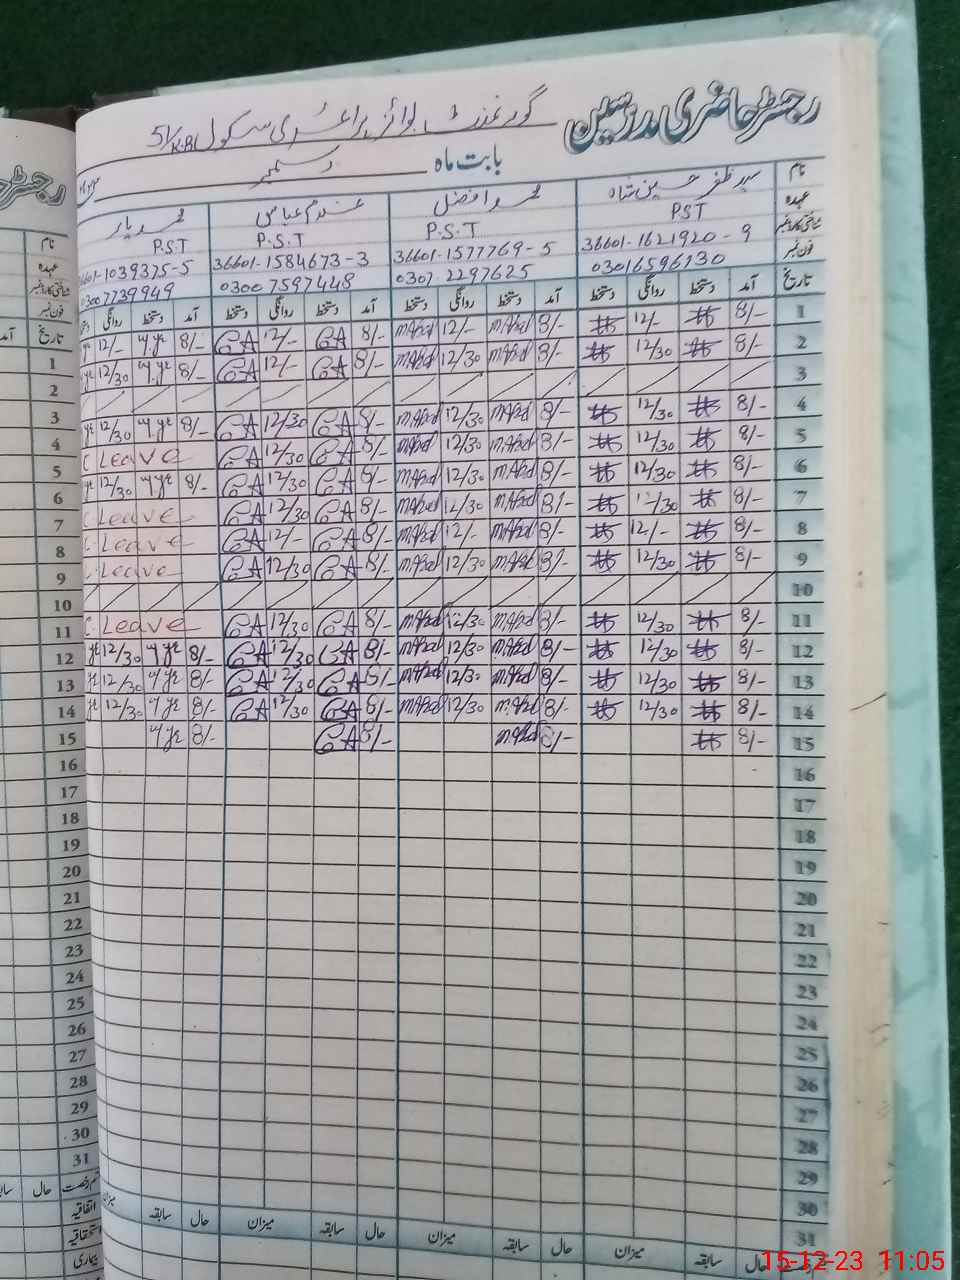 رجسٹر حاضری مدرسین
گورنمنٹ بوائز پرائمری سکول 51/K.B
بابت ماہ دسمبر
نام سید ظفر حسین شاہ محمد افضل غلام عباس محمد یار
عہدہ PST P.S.T P.S.T P.S.T
شناختی کارڈ نمبر 36601-1621920-9 36601-1577769-5 36601-1584673-3 6601-1039375-5
فون نمبر 03016596130 0307-2297625 0300 7597448 03007739949
تاریخ آمد دستخط روانگی دستخط آمد دستخط روانگی دستخط آمد دستخط روانگی دستخط آمد دستخط روانگی
1 8/- 12/- 8/- M.Afzal 12/- M.Afzal 8/- GA 12/- GA 8/- 12/-
2 8/- 12/30 8/- M.Afzal 12/30 M.Afzal 8/- GA 12/- GA 8/- 12/30
3
4 8/- 12/30 8/- M.Afzal 12/30 M.Afzal 8/- GA 12/30 GA 8/- 12/30
5 8/- 12/30 8/- M.Afzal 12/30 M.Afzal 8/- GA 12/30 GA C. Leave
6 8/- 12/30 8/- M.Afzal 12/30 M.Afzal 8/- GA 12/30 GA 8/- 12/30
7 8/- 12/30 8/- M.Afzal 12/30 M.Afzal 8/- GA 12/30 GA C. Leave
8 8/- 12/- 8/- M.Afzal 12/- M.Afzal 8/- GA 12/- GA Leave
9 8/- 12/30 8/- M.Afzal 12/30 M.Afzal 8/- GA 12/30 GA Leave
10
11 8/- 12/30 8/- M.Afzal 12/30 M.Afzal 8/- GA 12/30 GA C. Leave
12 8/- 12/30 8/- M.Afzal 12/30 M.Afzal 8/- GA 12/30 GA 8/- 12/30
13 8/- 12/30 8/- M.Afzal 12/30 M.Afzal 8/- GA 12/30 GA 8/- 12/30
14 8/- 12/30 8/- M.Afzal 12/30 M.Afzal 8/- GA 12/30 GA 8/- 12/30
15 8/- 8/- M.Afzal 8/- GA 8/-
16
17
18
19
20
21
22
23
24
25
26
27
28
29
30
31
حال سابقہ میزان حال سابقہ میزان حال سابقہ میزان حال سابقہ میزان
نام
عہدہ
شناختی کارڈ نمبر
فون نمبر
تاریخ آمد
1
2
3
4
5
6
7
8
9
10
11
12
13
14
15
16
17
18
19
20
21
22
23
24
25
26
27
28
29
30
31
قسم رخصت حال
اتفاقیہ
استحقاقیہ
بیماری
15-12-23 11:05